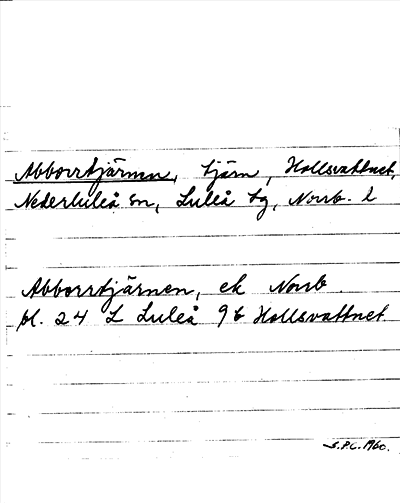 Abborrtjärnen, tjärn, Hallsvattnet,
Nederluleå sn, Luleå tg, Norrb. l
Abborrtjärnen, ek Norrb.
bl. 24 L Luleå 9b Hallsvattnet
S.P.C. 1960.